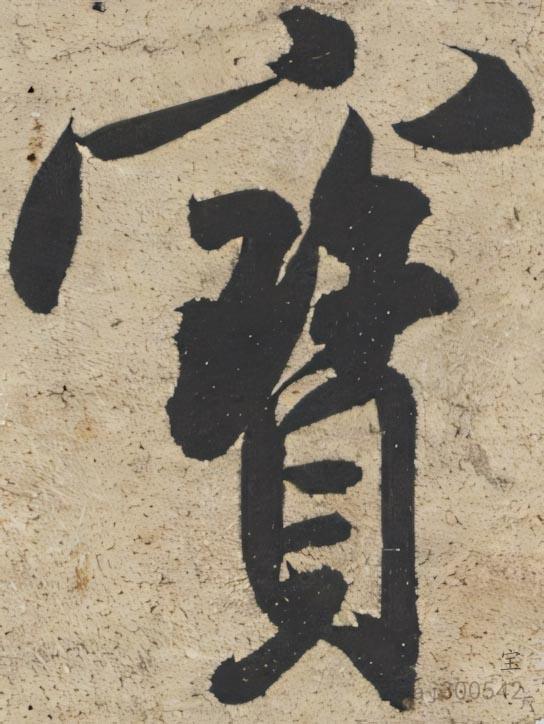 寶
宝
300542